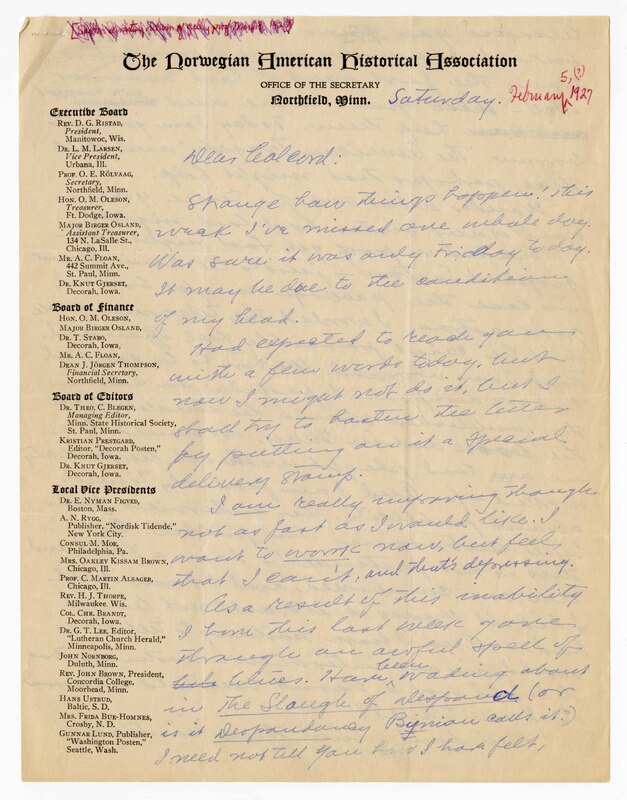 The Norwegian American Historical Association
OFFICE OF THE SECRETARY
Northfield, Minn.
Saturday. February 5, (?) 1927
Executive Board
REV. D. G. RISTAD,
President,
Manitowoc, Wis.
DR. L. M. LARSEN,
Vice President,
Urbana, Ill.
PROF. O. E. RÖLVAAG,
Secretary,
Northfield, Minn.
HON. O. M. OLESON,
Treasurer,
Ft. Dodge, Iowa.
MAJOR BIRGER OSLAND,
Assistant Treasurer,
134 N. LaSalle St.,
Chicago, Ill.
MR. A. C. FLOAN,
442 Summit Ave.,
St. Paul, Minn.
DR. KNUT GJERSET,
Decorah, Iowa.
Board of Finance
HON. O. M. OLESON,
MAJOR BIRGER OSLAND,
DR. T. STABO,
Decorah, Iowa.
MR. A. C. FLOAN,
DEAN J. JÖRGEN THOMPSON,
Financial Secretary,
Northfield, Minn.
Board of Editors
DR. THEO. C. BLEGEN,
Managing Editor,
Minn. State Historical Society,
St. Paul, Minn.
KRISTIAN PRESTGARD,
Editor, "Decorah Posten,"
Decorah, Iowa.
DR. KNUT GJERSET,
Decorah, Iowa.
Local Vice Presidents
DR. E. NYMAN FIGVED,
Boston, Mass.
A. N. RYGG,
Publisher, "Nordisk Tidende,"
New York City.
CONSUL M. MOE,
Philadelphia, Pa.
MRS. OAKLEY KISSAM BROWN,
Chicago, Ill.
PROF. C. MARTIN ALSAGER,
Chicago, Ill.
REV. H. J. THORPE,
Milwaukee. Wis.
COL. CHR. BRANDT,
Decorah, Iowa.
DR. G. T. LEE, Editor,
"Lutheran Church Herald,"
Minneapolis, Minn.
JOHN NORNBORG,
Duluth, Minn.
REV. JOHN BROWN, President,
Concordia College,
Moorhead, Minn.
HANS USTRUD,
Baltic, S. D.
MRS. FRIDA BUE-HOMNES,
Crosby, N. D.
GUNNAR LUND, Publisher,
"Washington Posten,"
Seattle, Wash.
Dear Colcord:
Strange how things happen! This
week I've missed one whole day.
Was sure it was only Friday today.
It may be due to the condition
of my head.
Had expected to reach you
with a few words today, but
now I might not do it, but I
shall try to hasten the letter
by putting on it a special
delivery stamp.
I am really improving though
not as fast as I would like. I
want to work now, but feel
that I can't, and that's depressing.
As a result of this inability
I have this last week gone
through an awful spell of
blues. Have been wading about
in The Slough of Despond (or
is it Despondancy Bynian calls it?)
I need not tell you how I have felt,